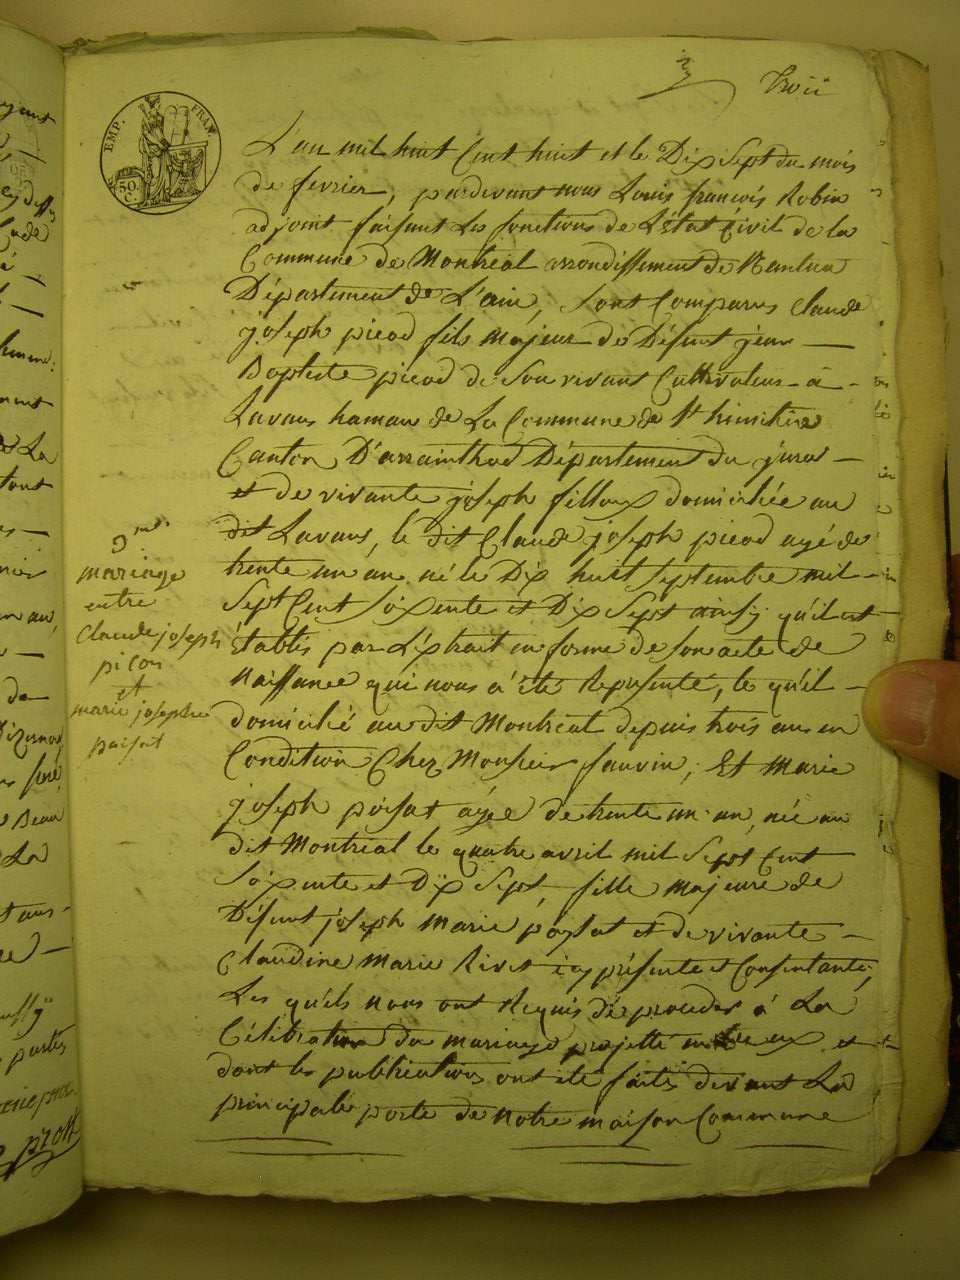 3
trois
EMP. FRAN.
50.
C.
L'an mil huit Cent huit et le Dix Sept du mois
de fevrier, pardevant nous Louis françois Robin
adjoint faisant Les fonctions de L'état Civil de la
Commune de Montréal arrondissement de Nantua
Département de L'ain, sont Comparus Claude
joseph picod fils majeur de Défunt jean —
Baptiste picod de Son vivant Cultivateur - à -
Lavans hamau de La Commune de St himitiere
Canton D'arrainthod Département du jura —
et de vivante joseph filloux domiciliée au
dit Lavans, le dit Claude joseph picod agé de
trente un an né le Dix huit septembre mil -
Sept Cent Soixente et Dix Sept ainsy qu'il est
Établis par L'éxtrait en forme de son acte de
Naissance qui nous a été Représenté, le qu'il -
domicilié au dit Montréal depuis trois ans en
Condition Chez Monsieur fauvin, Et Marie
joseph poisat agée de trente un an, née au
dit Montréal le quatre avril mil Sept Cent
Soixente et Dix Sept, fille majeure de
Défunt joseph Marie poysat et de vivante —
Claudine Marie Rivet icy présente et Consentante,
Les qu'els nous ont Requis de procéder à La
Célébration du mariage projetté entre eux et
dont les publications ont été faites devant La
principale porte de notre maison Commune
3me.
mariage
entre
Claude joseph
picou
et
marie josephe
paisat